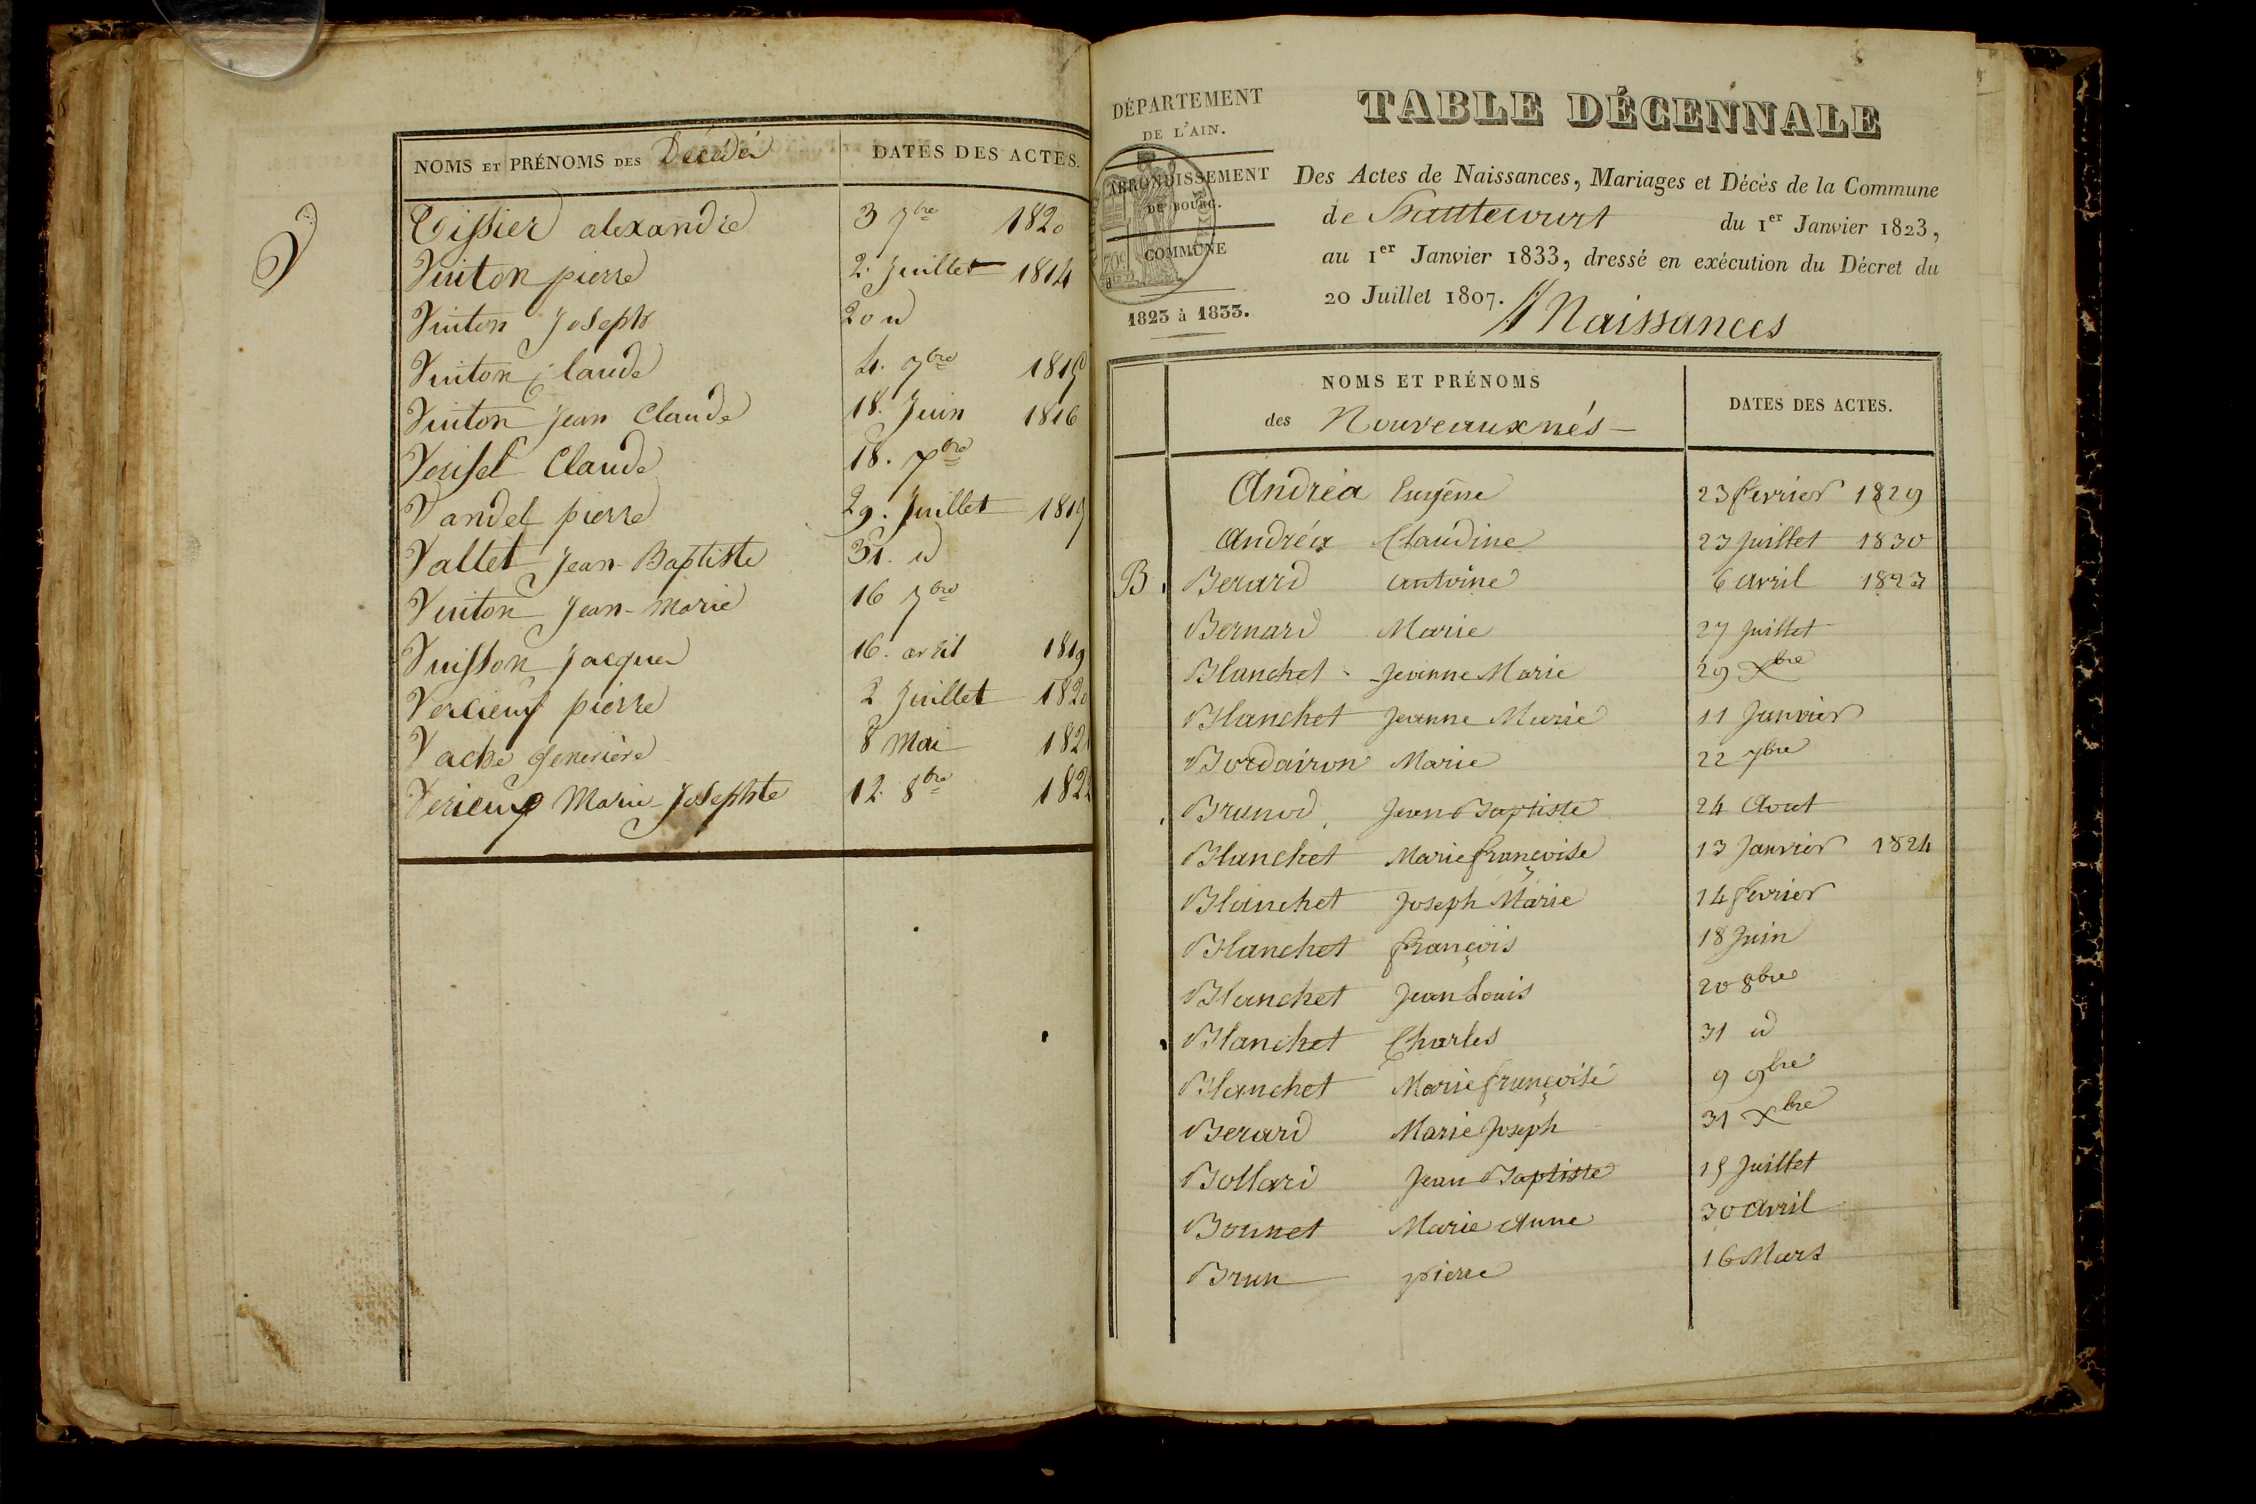 NOMS ET PRÉNOMS DES Décédés
DATES DES ACTES.
V
Tissier alexandre 3 7bre 1820
Vuiton pierre 2. Juillet 1814
Vuiton Joseph 20 id
Vuiton Claude 4. 7bre 1815
Vuiton Jean Claude 18. Juin 1816
Claude 18. Xbre
Vandel pierre 29. Juillet 1817
Vallet Jean-Baptiste 31. id
Vuiton Jean-marie 16 7bre
Vuisson Jacques 16. avril 1819
pierre 2 Juillet 1820
Vache genevière 8 Mai 1821
Marie Josephte 12. 8bre 1822
DÉPARTEMENT
DE L'AIN.
ARRONDISSEMENT
DE BOURG.
COMMUNE
1823 à 1833.
TABLE DÉCENNALE
Des Actes de Naissances, Mariages et Décès de la Commune
de hautecourt du 1er Janvier 1823,
au 1er Janvier 1833, dressé en exécution du Décret du
20 Juillet 1807.
Naissances
NOMS ET PRÉNOMS
des Nouveauxnés
DATES DES ACTES.
Andréa Eugène 23 fevrier 1829
Andréa Claudine 23 Juillet 1830
B. Berard antoine 6 avril 1823
Bernard Marie 27 Juillet
Blanchet Jeanne Marie 29 Xbre
Blanchet Jeanne Marie 11 Janvier
Bordairon Marie 22 7bre
Brunod Jean Baptiste 24 Aout
Blanchet Marie françoise 13 Janvier 1824
Blanchet Joseph Marie 14 fevrier
Blanchet françois 18 Juin
Blanchet Jean Louis 20 8bre
Blanchet Charles 31 id
Blanchet Marie françoise 9 9bre
Berard Marie Joseph 31 Xbre
Bollard Jean Baptiste 15 Juillet
Bonnet Marie Anne 30 avril
Brun pierre 16 Mars